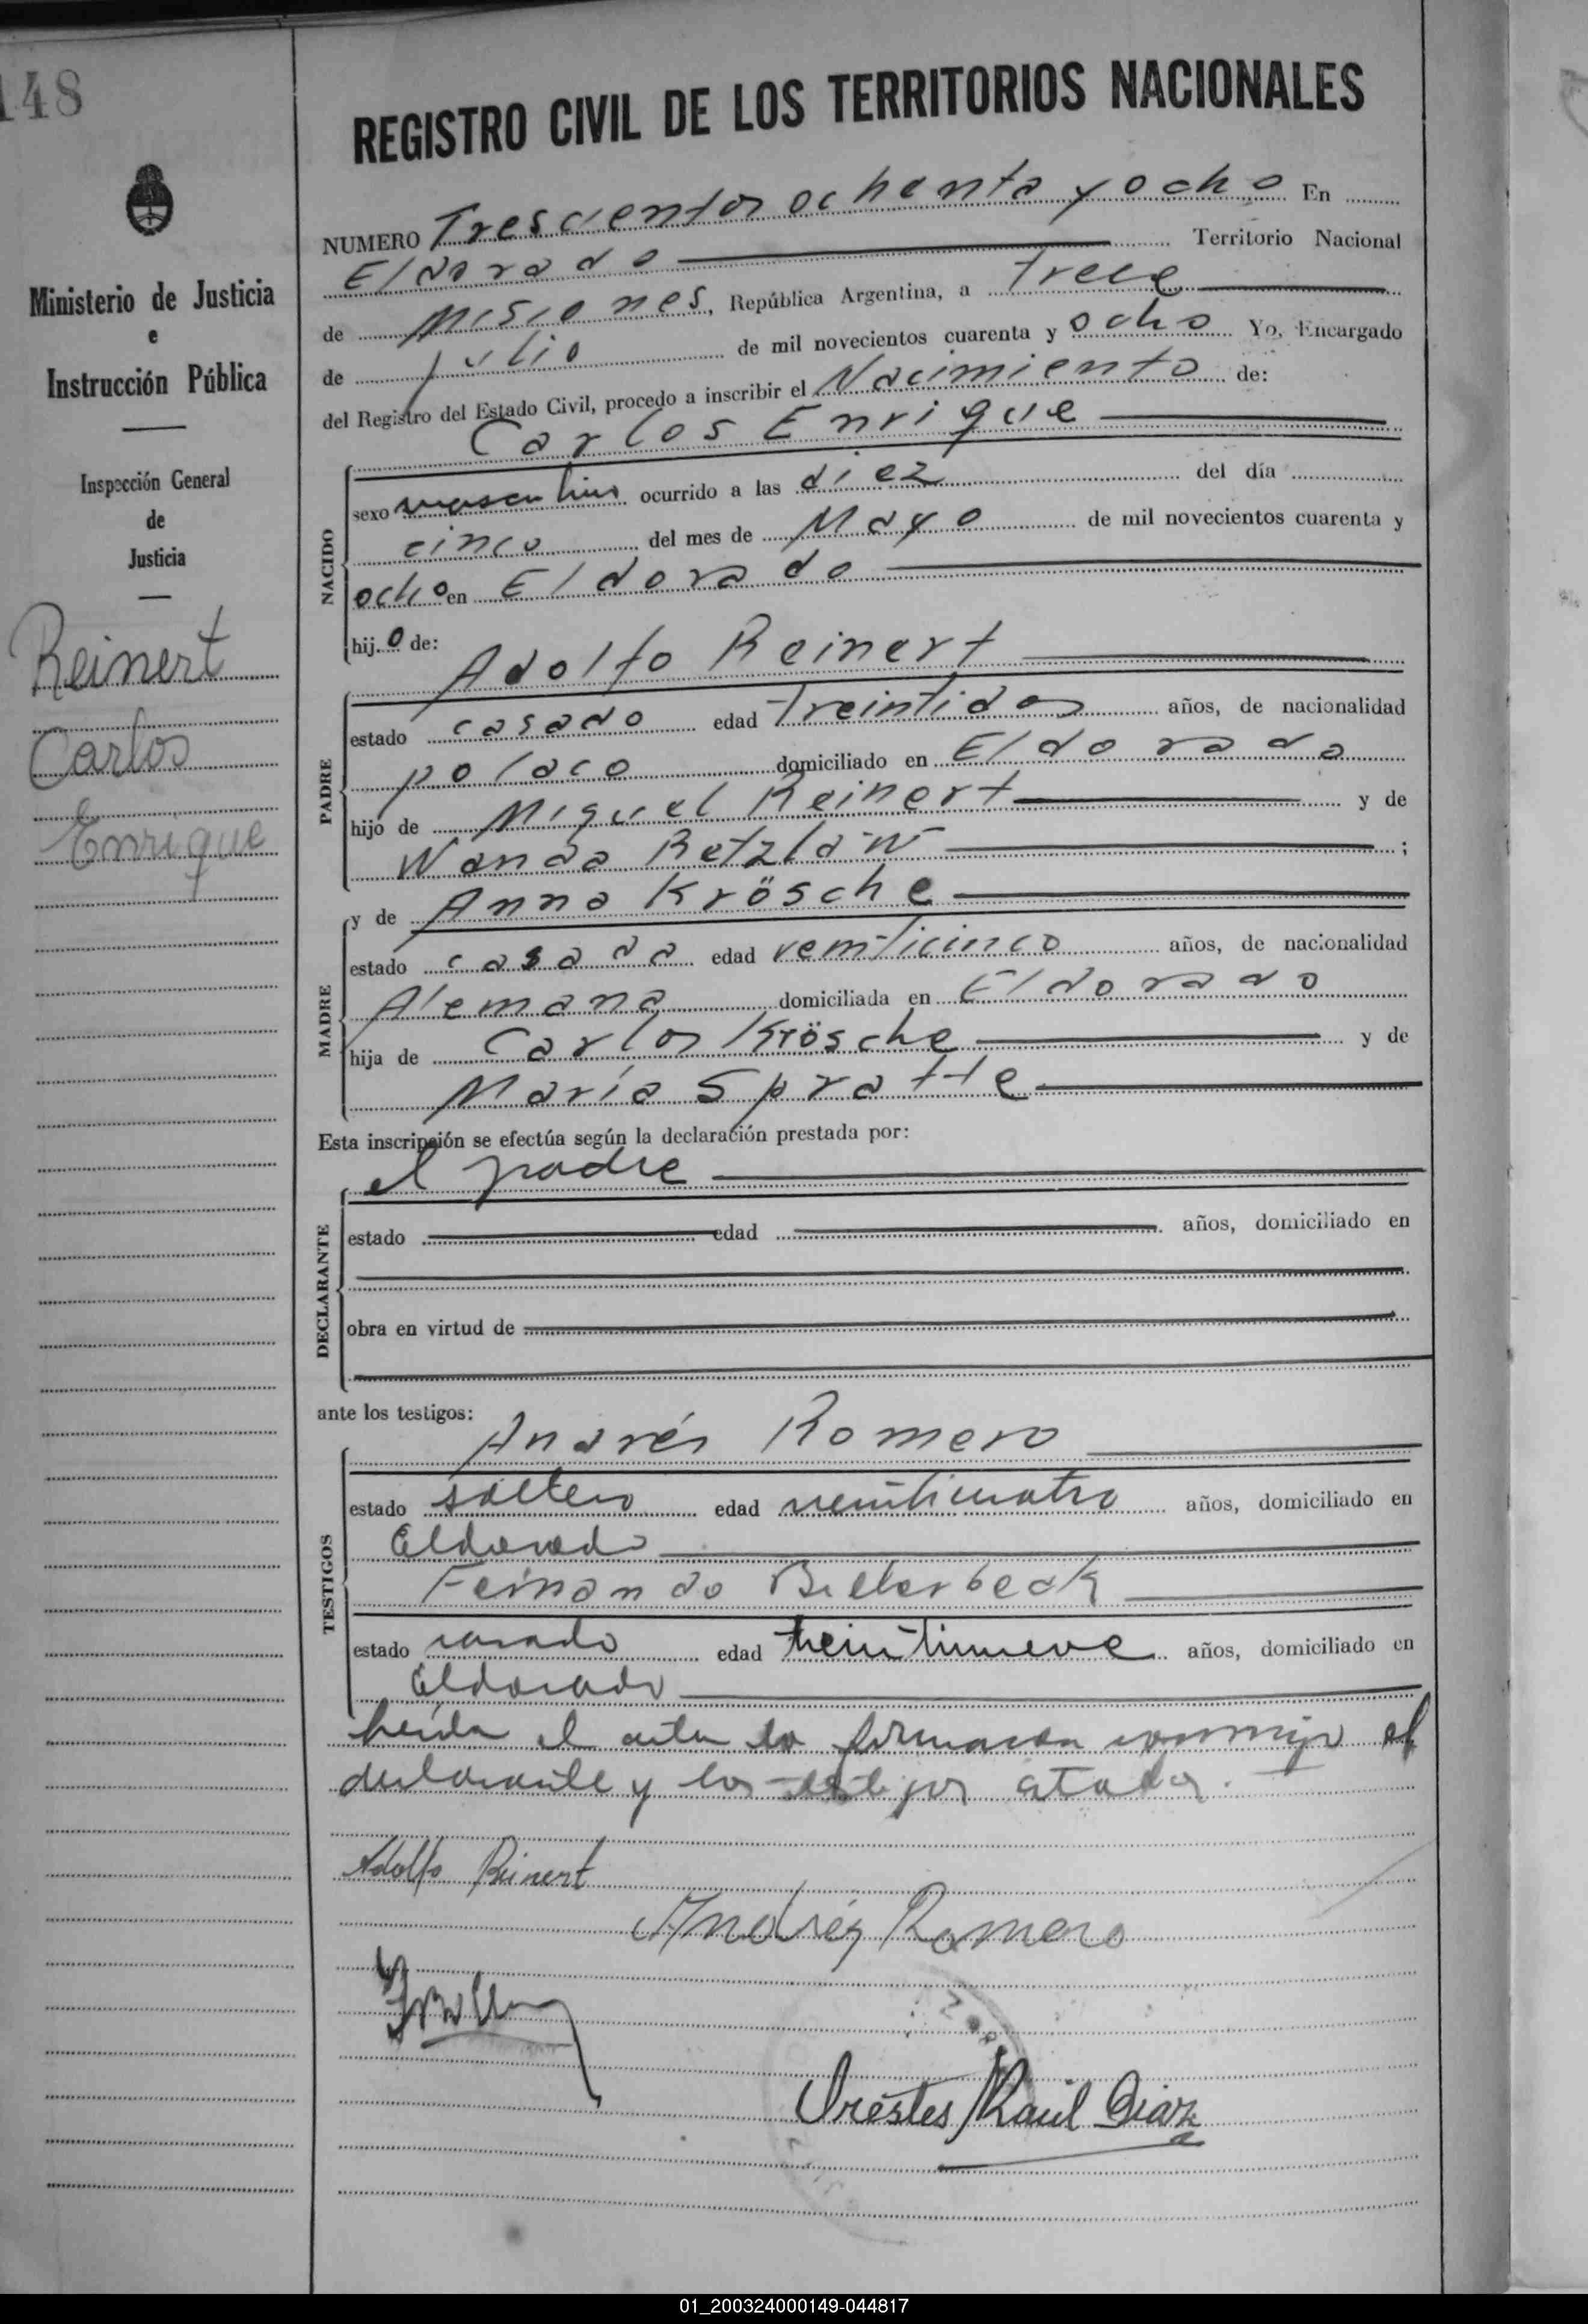 148
Ministerio de Justicia
e
Instrucción Pública
Inspección General
de
Justicia
Reinert
Carlos
Enrique
REGISTRO CIVIL DE LOS TERRITORIOS NACIONALES
NUMERO Trescientos ochenta y ocho En
Eldorado Territorio Nacional
de Misiones, República Argentina, a trece
de julio de mil novecientos cuarenta y ocho Yo, Encargado
del Registro del Estado Civil, procedo a inscribir el Nacimiento de:
Carlos Enrique
NACIDO
sexo masculino ocurrido a las diez del día
cinco del mes de Mayo de mil novecientos cuarenta y
ocho en Eldorado
hij.o de:
Adolfo Reinert
PADRE
estado casado edad Treintidos años, de nacionalidad
polaco domiciliado en Eldorado
hijo de Miguel Reinert y de
Wanda Retzlaw ;
y de Anna Krösche
MADRE
estado casada edad venticinco años, de nacionalidad
Alemana domiciliada en Eldorado
hija de Carlos Krösche y de
María Spratte
Esta inscripción se efectúa según la declaración prestada por:
el padre
DECLARANTE
estado edad años, domiciliado en
obra en virtud de
ante los testigos:
Andrés Romero
TESTIGOS
estado soltero edad venticuatro años, domiciliado en
Eldorado
Fernando Billerbeck
estado casado edad treintinueve años, domiciliado en
Eldorado
Leída el acta la firmaron conmigo el
declarante y los testigos citados.
Adolfo Reinert
Andrés Romero
Orestes Raúl Diaz
01_200324000149-044817